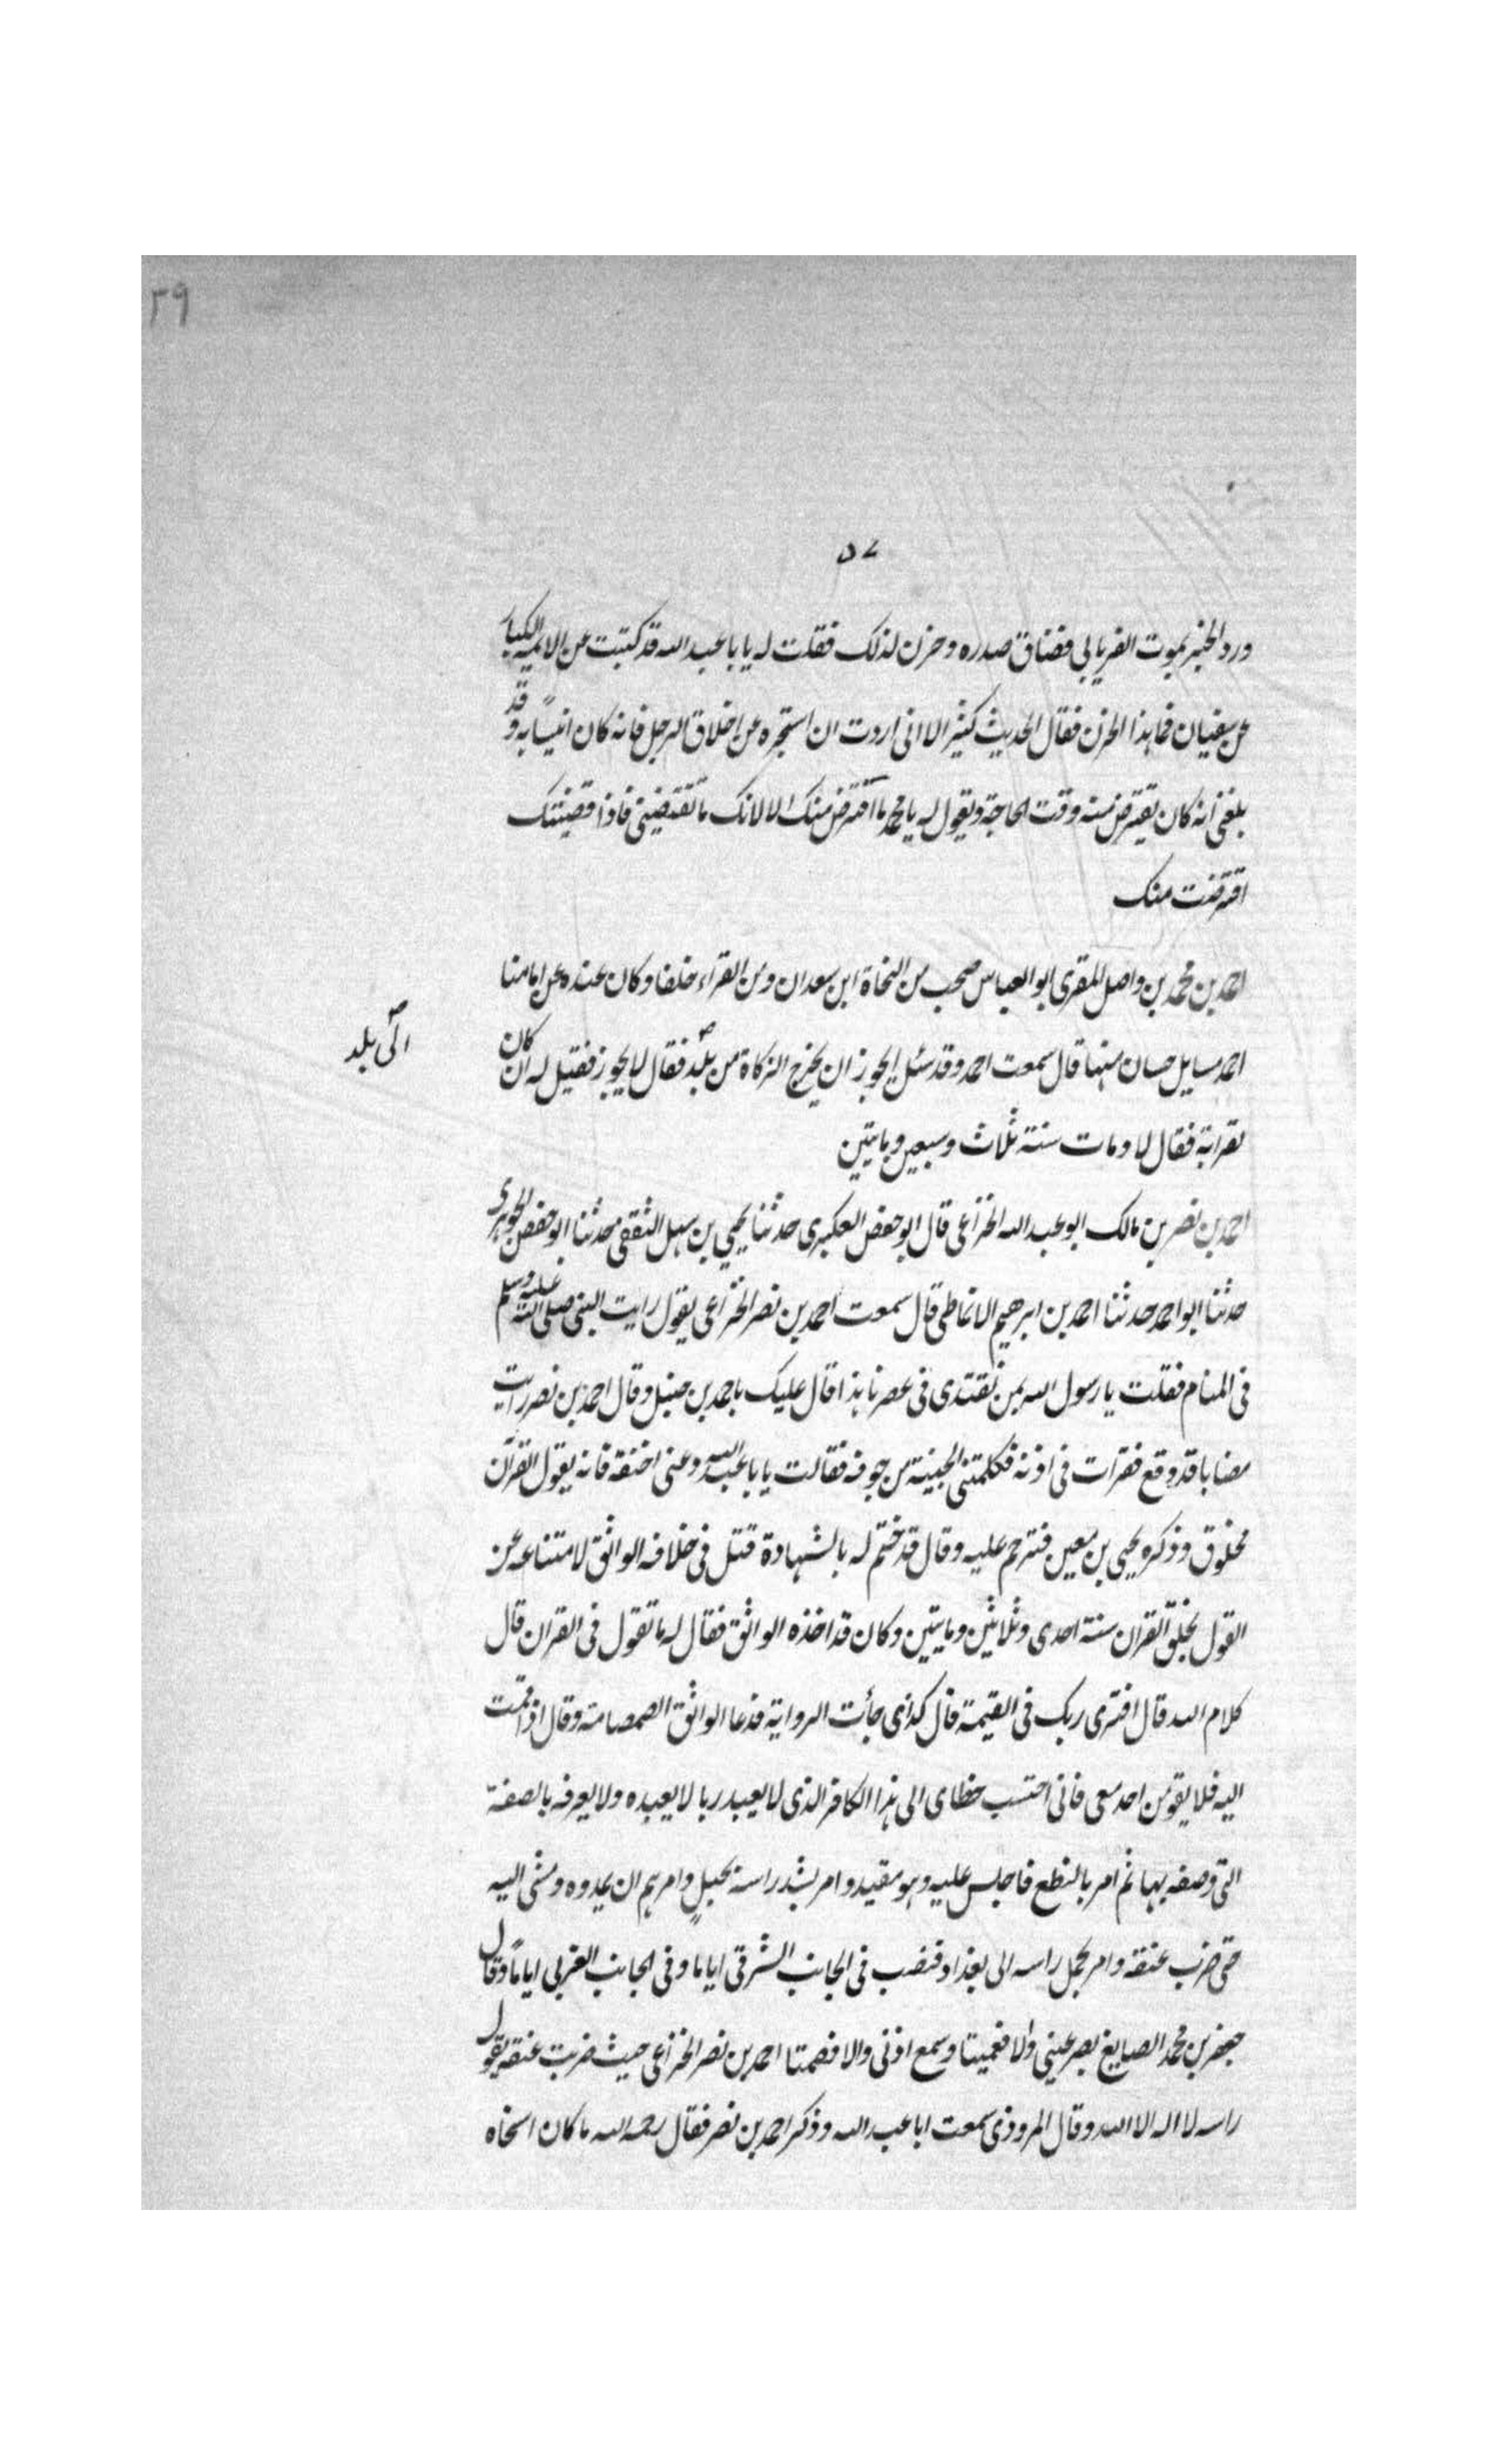 ٢٩
٥٧
ورد الخبر بموت الفريابي فضاق صدره وحزن لذلك فقلت له يا با عبد الله قد كتبت عن الايمه الكبار
عن سفيان فما هذا الحزن فقال الحديث كثير الا انى اردت ان استخبره عن اخلاق الرجل فانه كان انيسًا به و قد
بلغنى أنه كان يقترض منه وقت الحاجة ويقول له يا محمد ما اقترض منك الا لانك ما تقتضينى فاذا قضيتك
اقترضت منك
احمد بن محمد بن واصل المقرى ابو العباس صحب من النحاة ابن سعدان ومن القراء خلفا وكان عنده عن امامنا
احمد مسايل حسان منها قال سمعت احمد وقد سئل ايجوز ان يخرج الزكاة من بلد فقال لا يجوز فقيل له ان كان
الى بلد
لقرابة فقال لا ومات سنة ثلاث وسبعين ومايتين
احمد بن نصر بن مالك ابو عبد الله الخزاعى قال ابو حفص العكبرى حدثنا يحيى بن سهل الثقفى حدثنا ابو حفص الجوهرى
حدثنا ابو احمد حدثنا احمد بن ابرهيم الانماطى قال سمعت احمد بن نصر الخزاعى يقول رايت النبى صلى الله عليه وسلم
فى المنام فقلت يا رسول الله بمن نقتدى فى عصرنا هذا قال عليك باحمد بن حنبل وقال احمد بن نصر رايت
مصابا قد وقع فقرات فى اذنه فكلمتنى الجنية من جوفه فقالت يا با عبد الله دعنى اخنقه فانه يقول القرآن
مخلوق وذكره يحيى بن معين فترحم عليه وقال قد ختم له بالشهادة قتل فى خلافه الواثق لامتناعه عن
القول بخلق القران سنة احدى وثلاثين ومايتين وكان قد اخذه الواثق فقال له ما تقول فى القران قال
كلام الله قال افترى ربك فى القيمة قال كذى جأت الرواية فدعا الواثق الصمصامة وقال اذا قمت
اليه فلا يقومن احد معى فانى احتسب خطاى الى هذا الكافر الذى لا يعبد ربا لا يعبده ولا يعرفه بالصفة
التى وصفه بها ثم امر بالنطع فاجلس عليه وهو مقيد وامر بشد راسه بحبلٍ وامرهم ان يمدوه ومشى اليه
حتى ضرب عنقه وامر بحمل راسه الى بغداد فنصب فى الجانب الشرقى اياما وفى الجانب الغربى ايامًا وقال
جعفر بن محمد الصايغ بصر عينى والا فعميتا وسمع اذنى والا فصمتا احمد بن نصر الخزاعى حيث ضربت عنقه يقول
راسه لا اله الا الله وقال المروذى سمعت ابا عبد الله وذكر احمد بن نصر فقال رحمه الله ما كان اسخاه